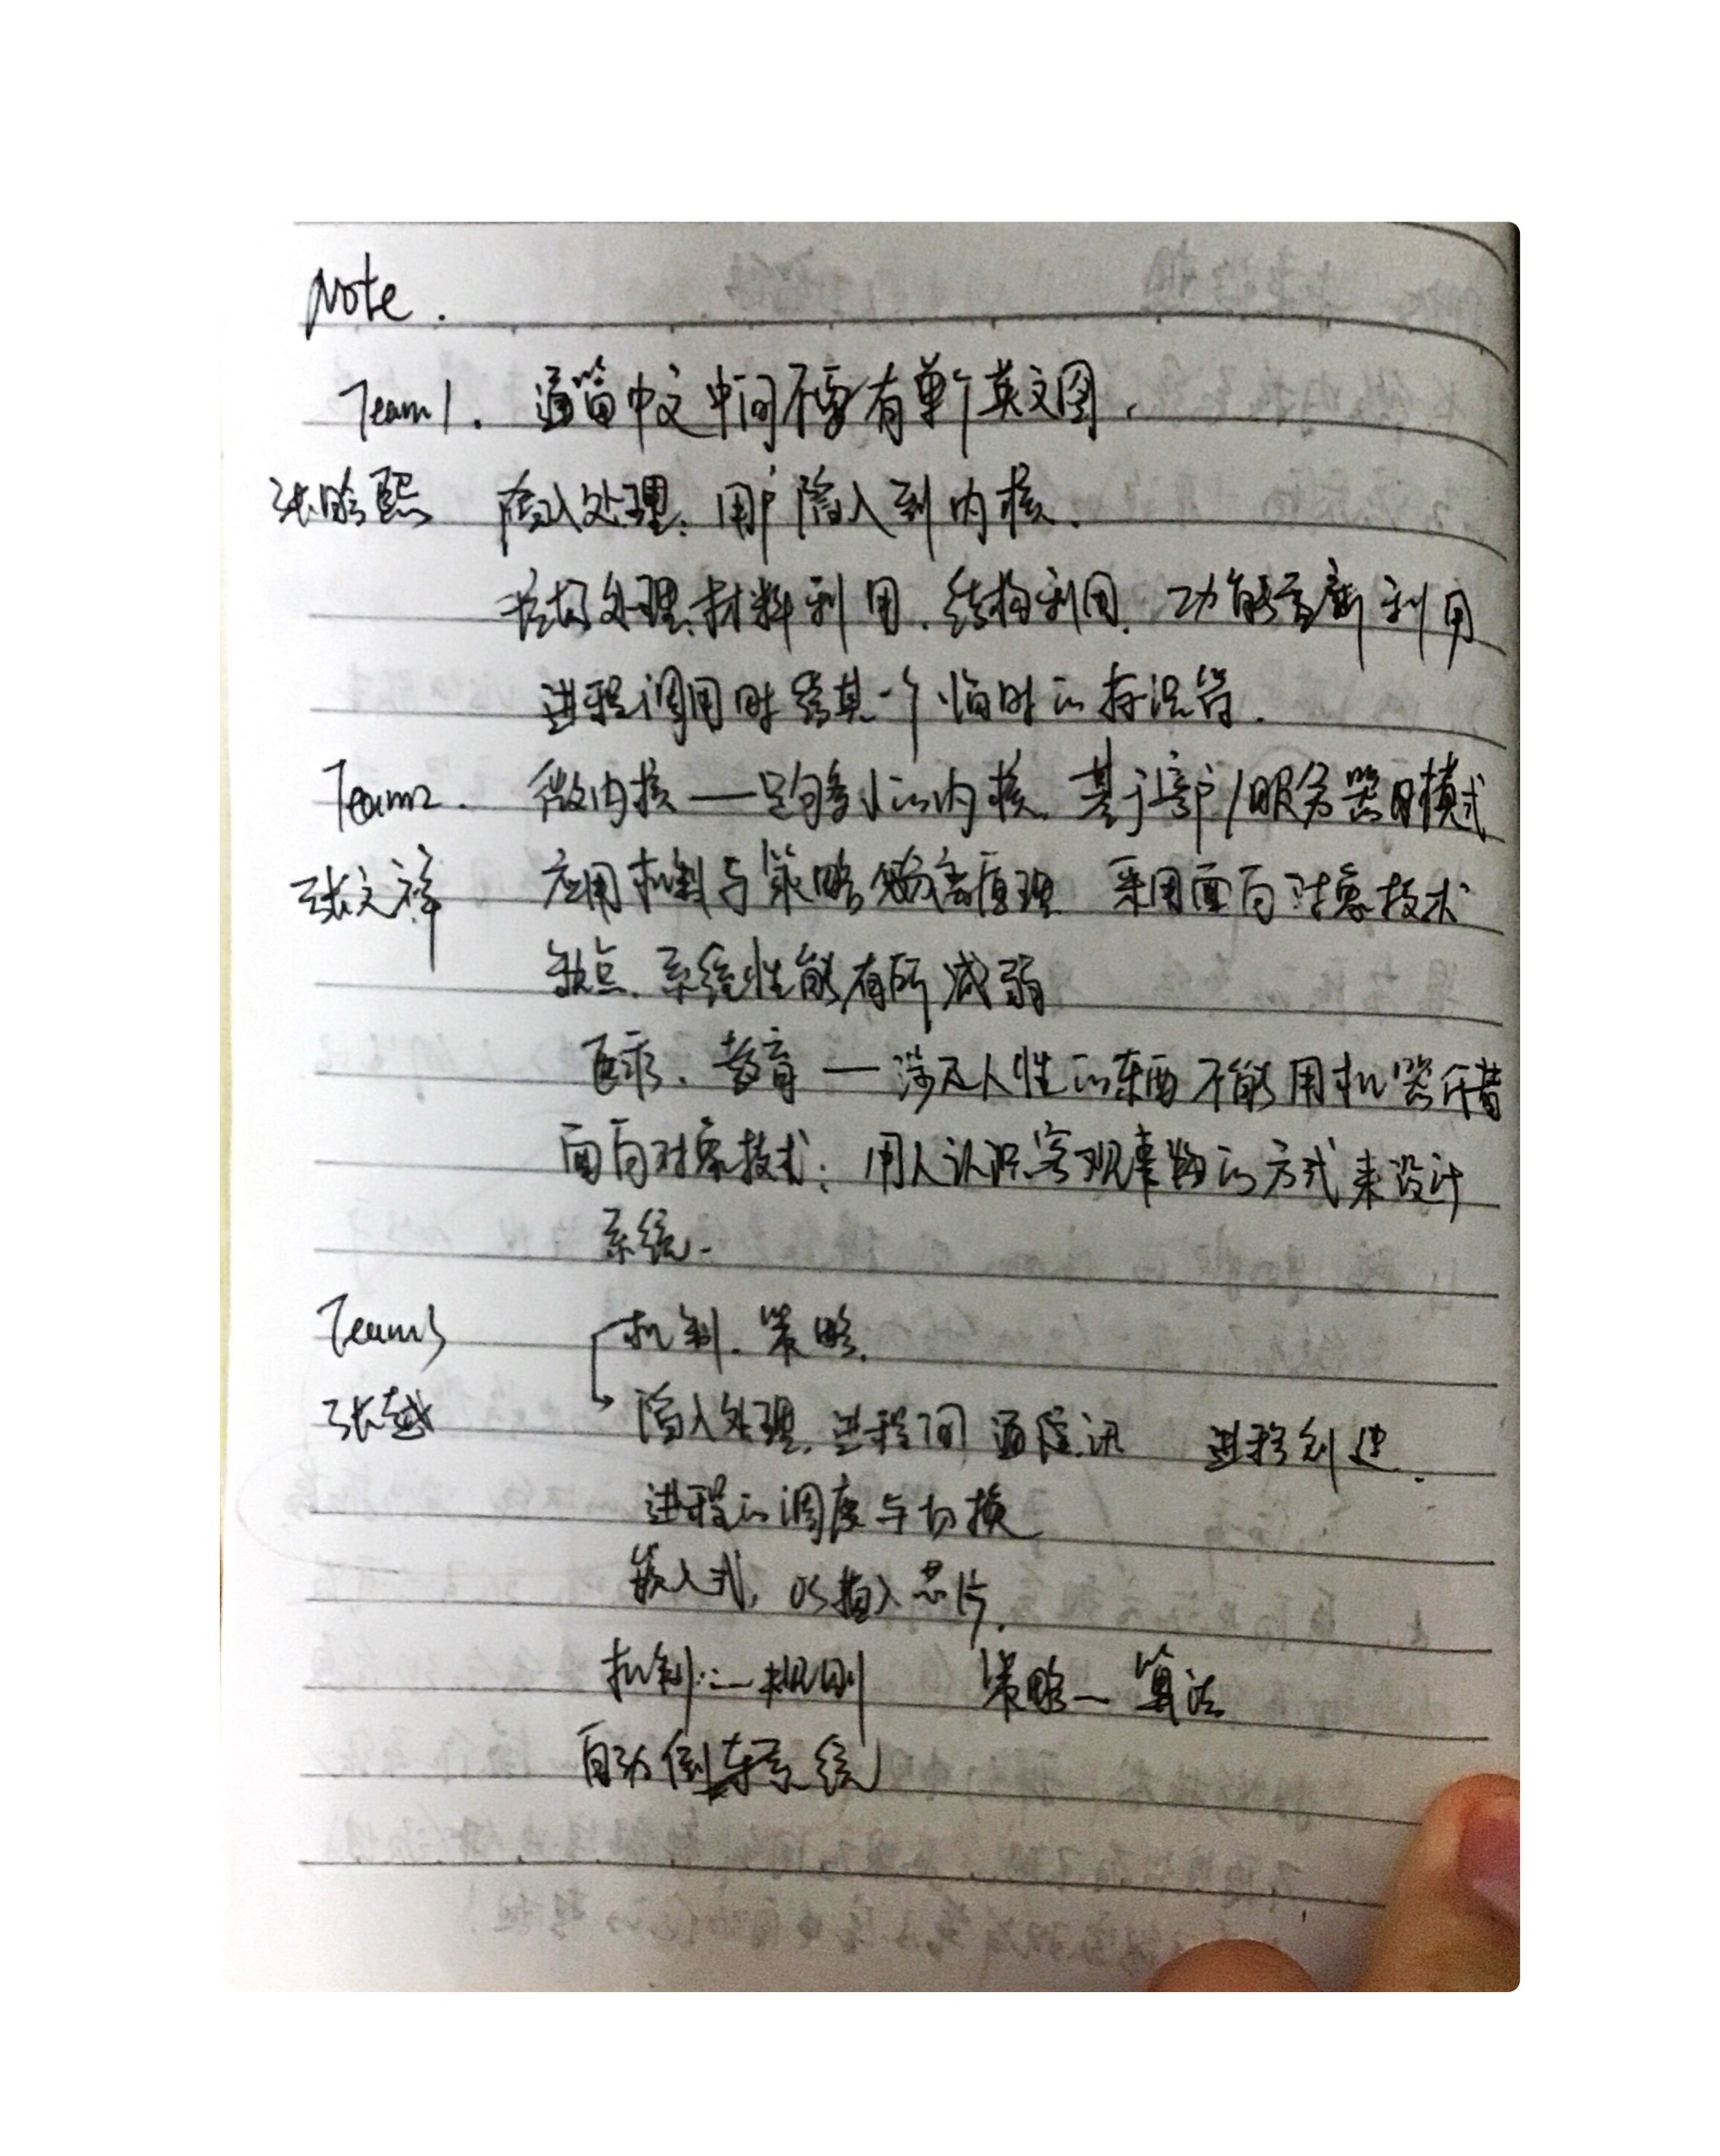 Note.
Team1. 通篇中文中间不要有单个英文图.
张晗熙 陷入处理. 用户陷入到内核.
垃圾处理: 材料利用. 结构利用. 功能重新利用
进程调用时 给其一个临时的标识符.
Team2. 微内核——足够小的内核. 基于客户/服务器模式
张文祥 应用机制与策略分离原理 采用面向对象技术
缺点. 系统性能有所减弱
医疗. 教育 — 涉及人性的东西不能用机器代替
面向对象技术: 用人认识客观事物的方式来设计
系统.
Team3 机制. 策略.
张越 陷入处理. 进程间通信 进程创建.
进程的调度与切换
嵌入式, OS植入芯片.
机制:— 规则 策略— 算法
自动倒车系统